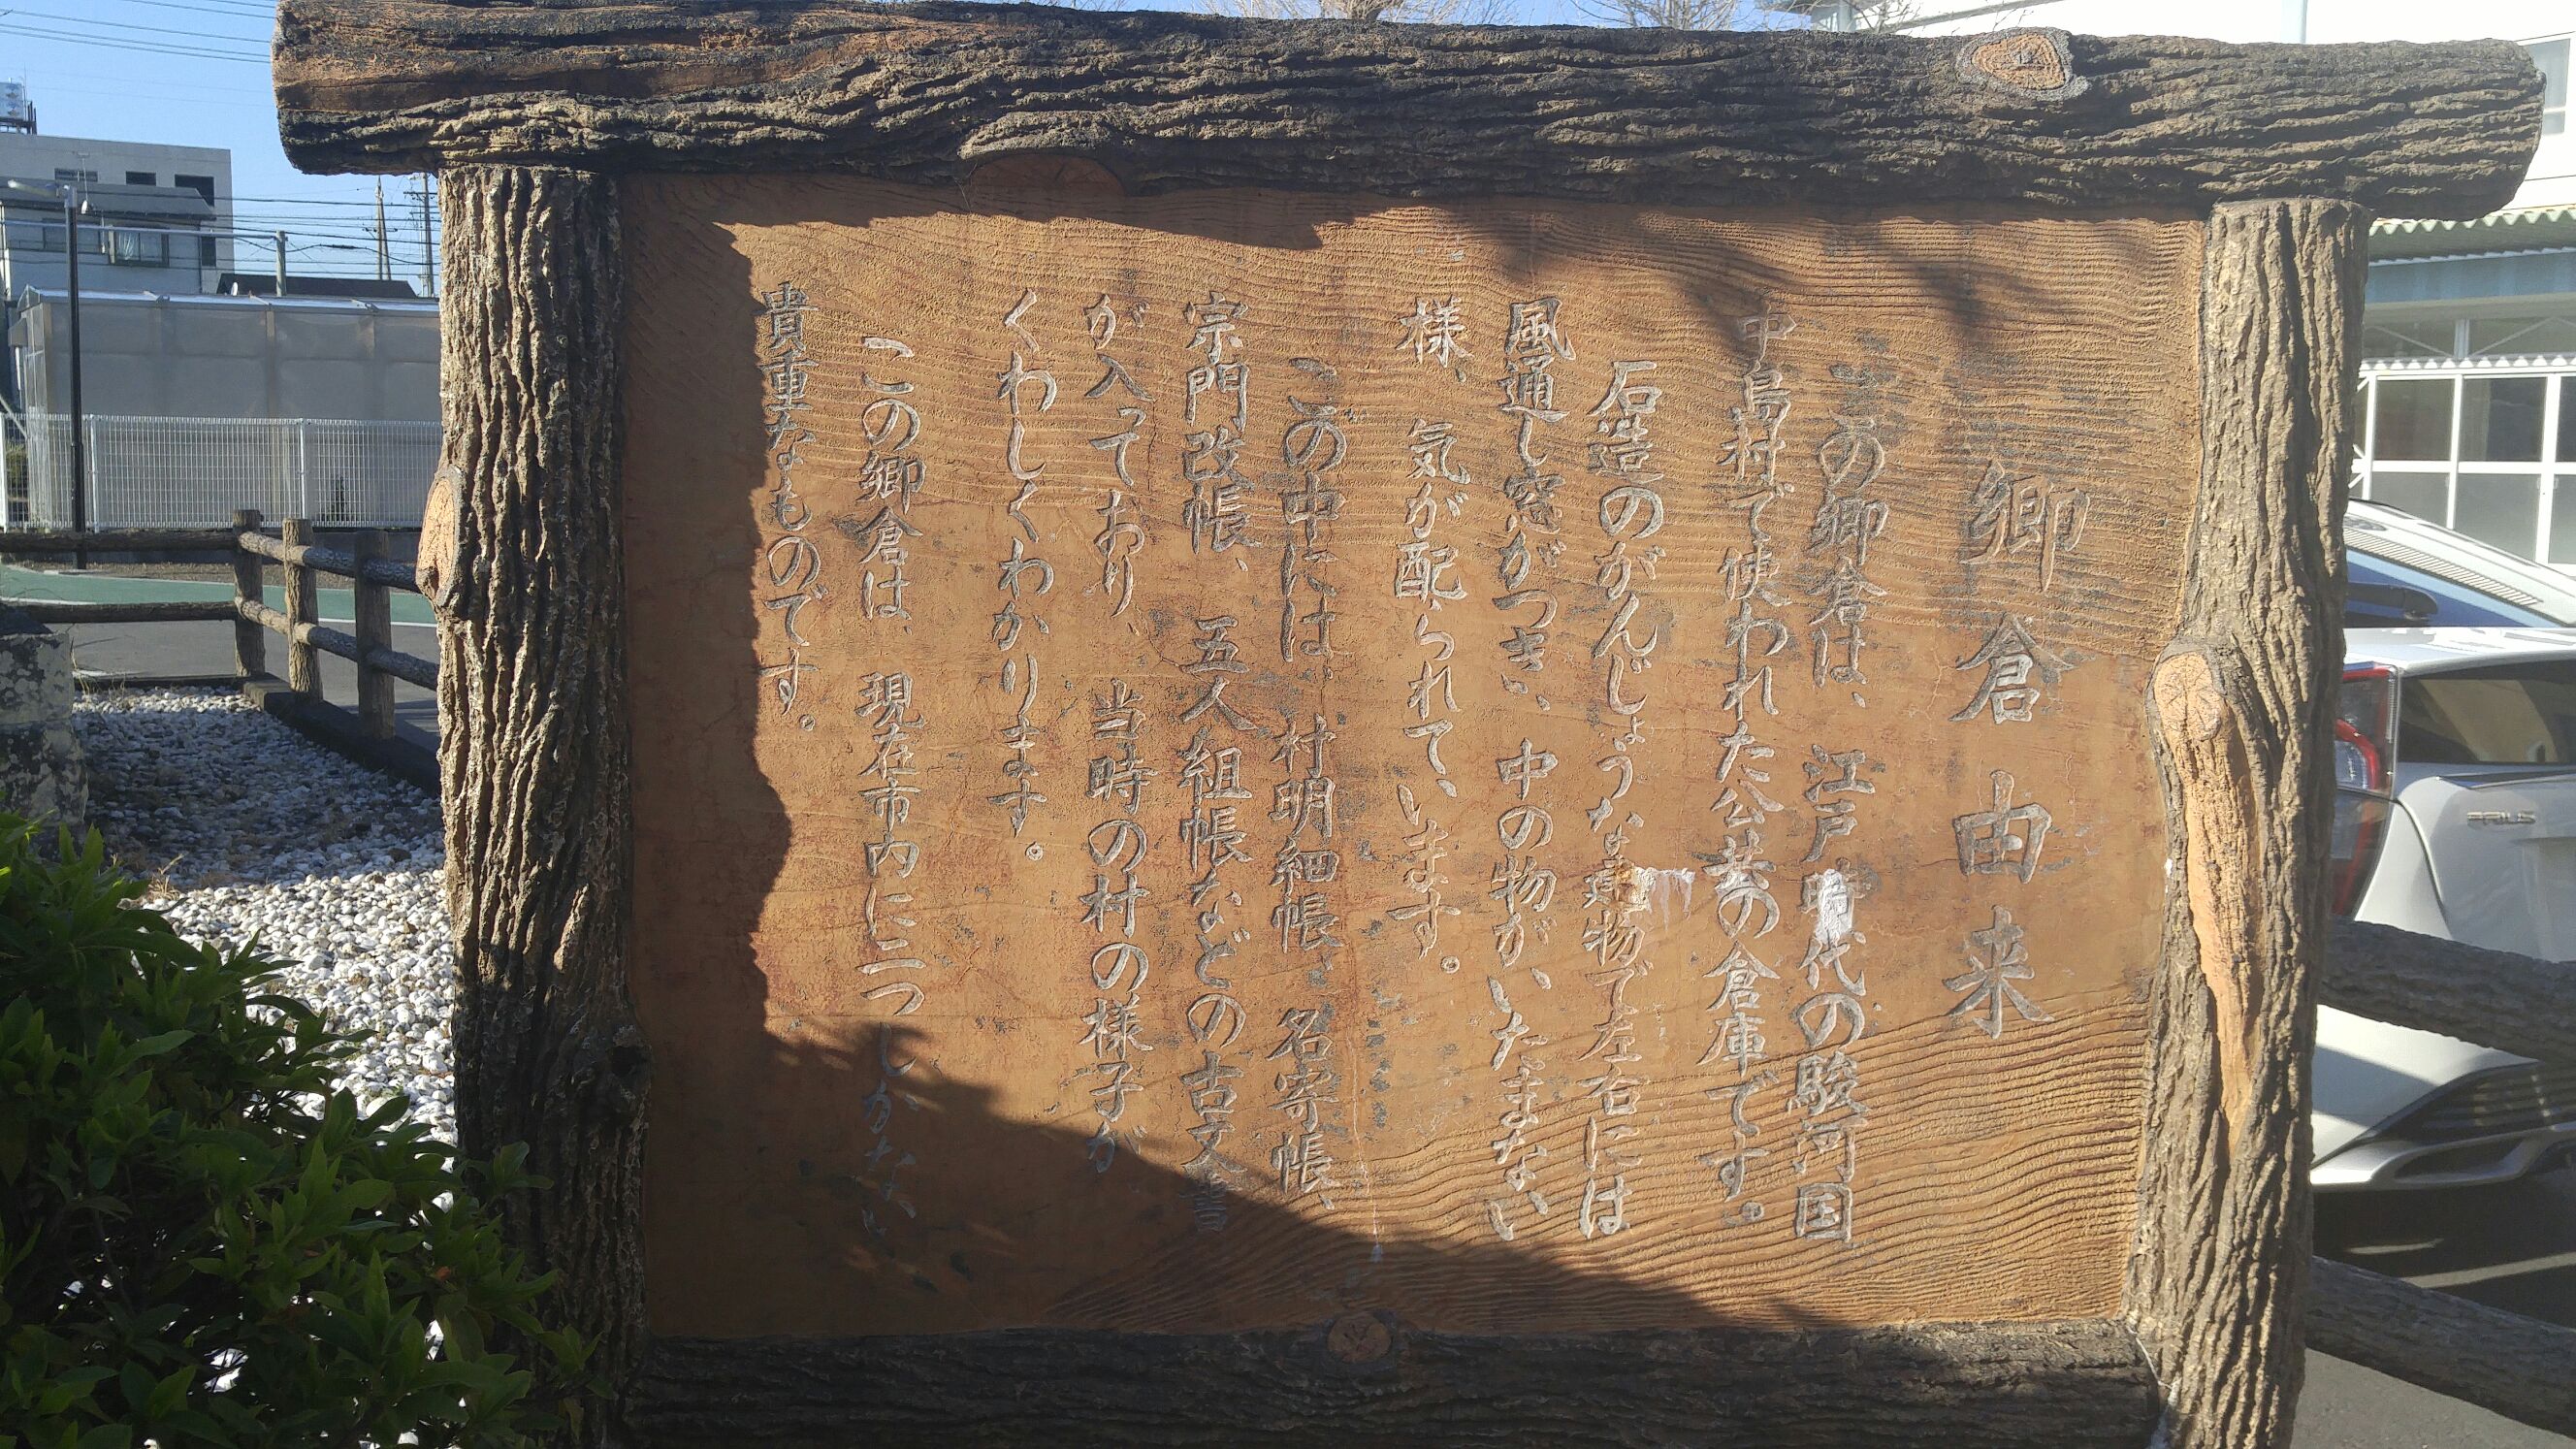 郷倉由来
この郷倉は、江戸時代の駿河国
中島村で使われた公共の倉庫です。
石造のがんじょうな建物で左右には
風通し窓がつき、中の物がいたまない
様、気が配られています。
この中には、村明細帳、名寄帳、
宗門改帳、五人組帳などの古文書
が入っており、当時の村の様子が
くわしくわかります。
この郷倉は、現在市内に二つしかない
貴重なものです。
PRIUS